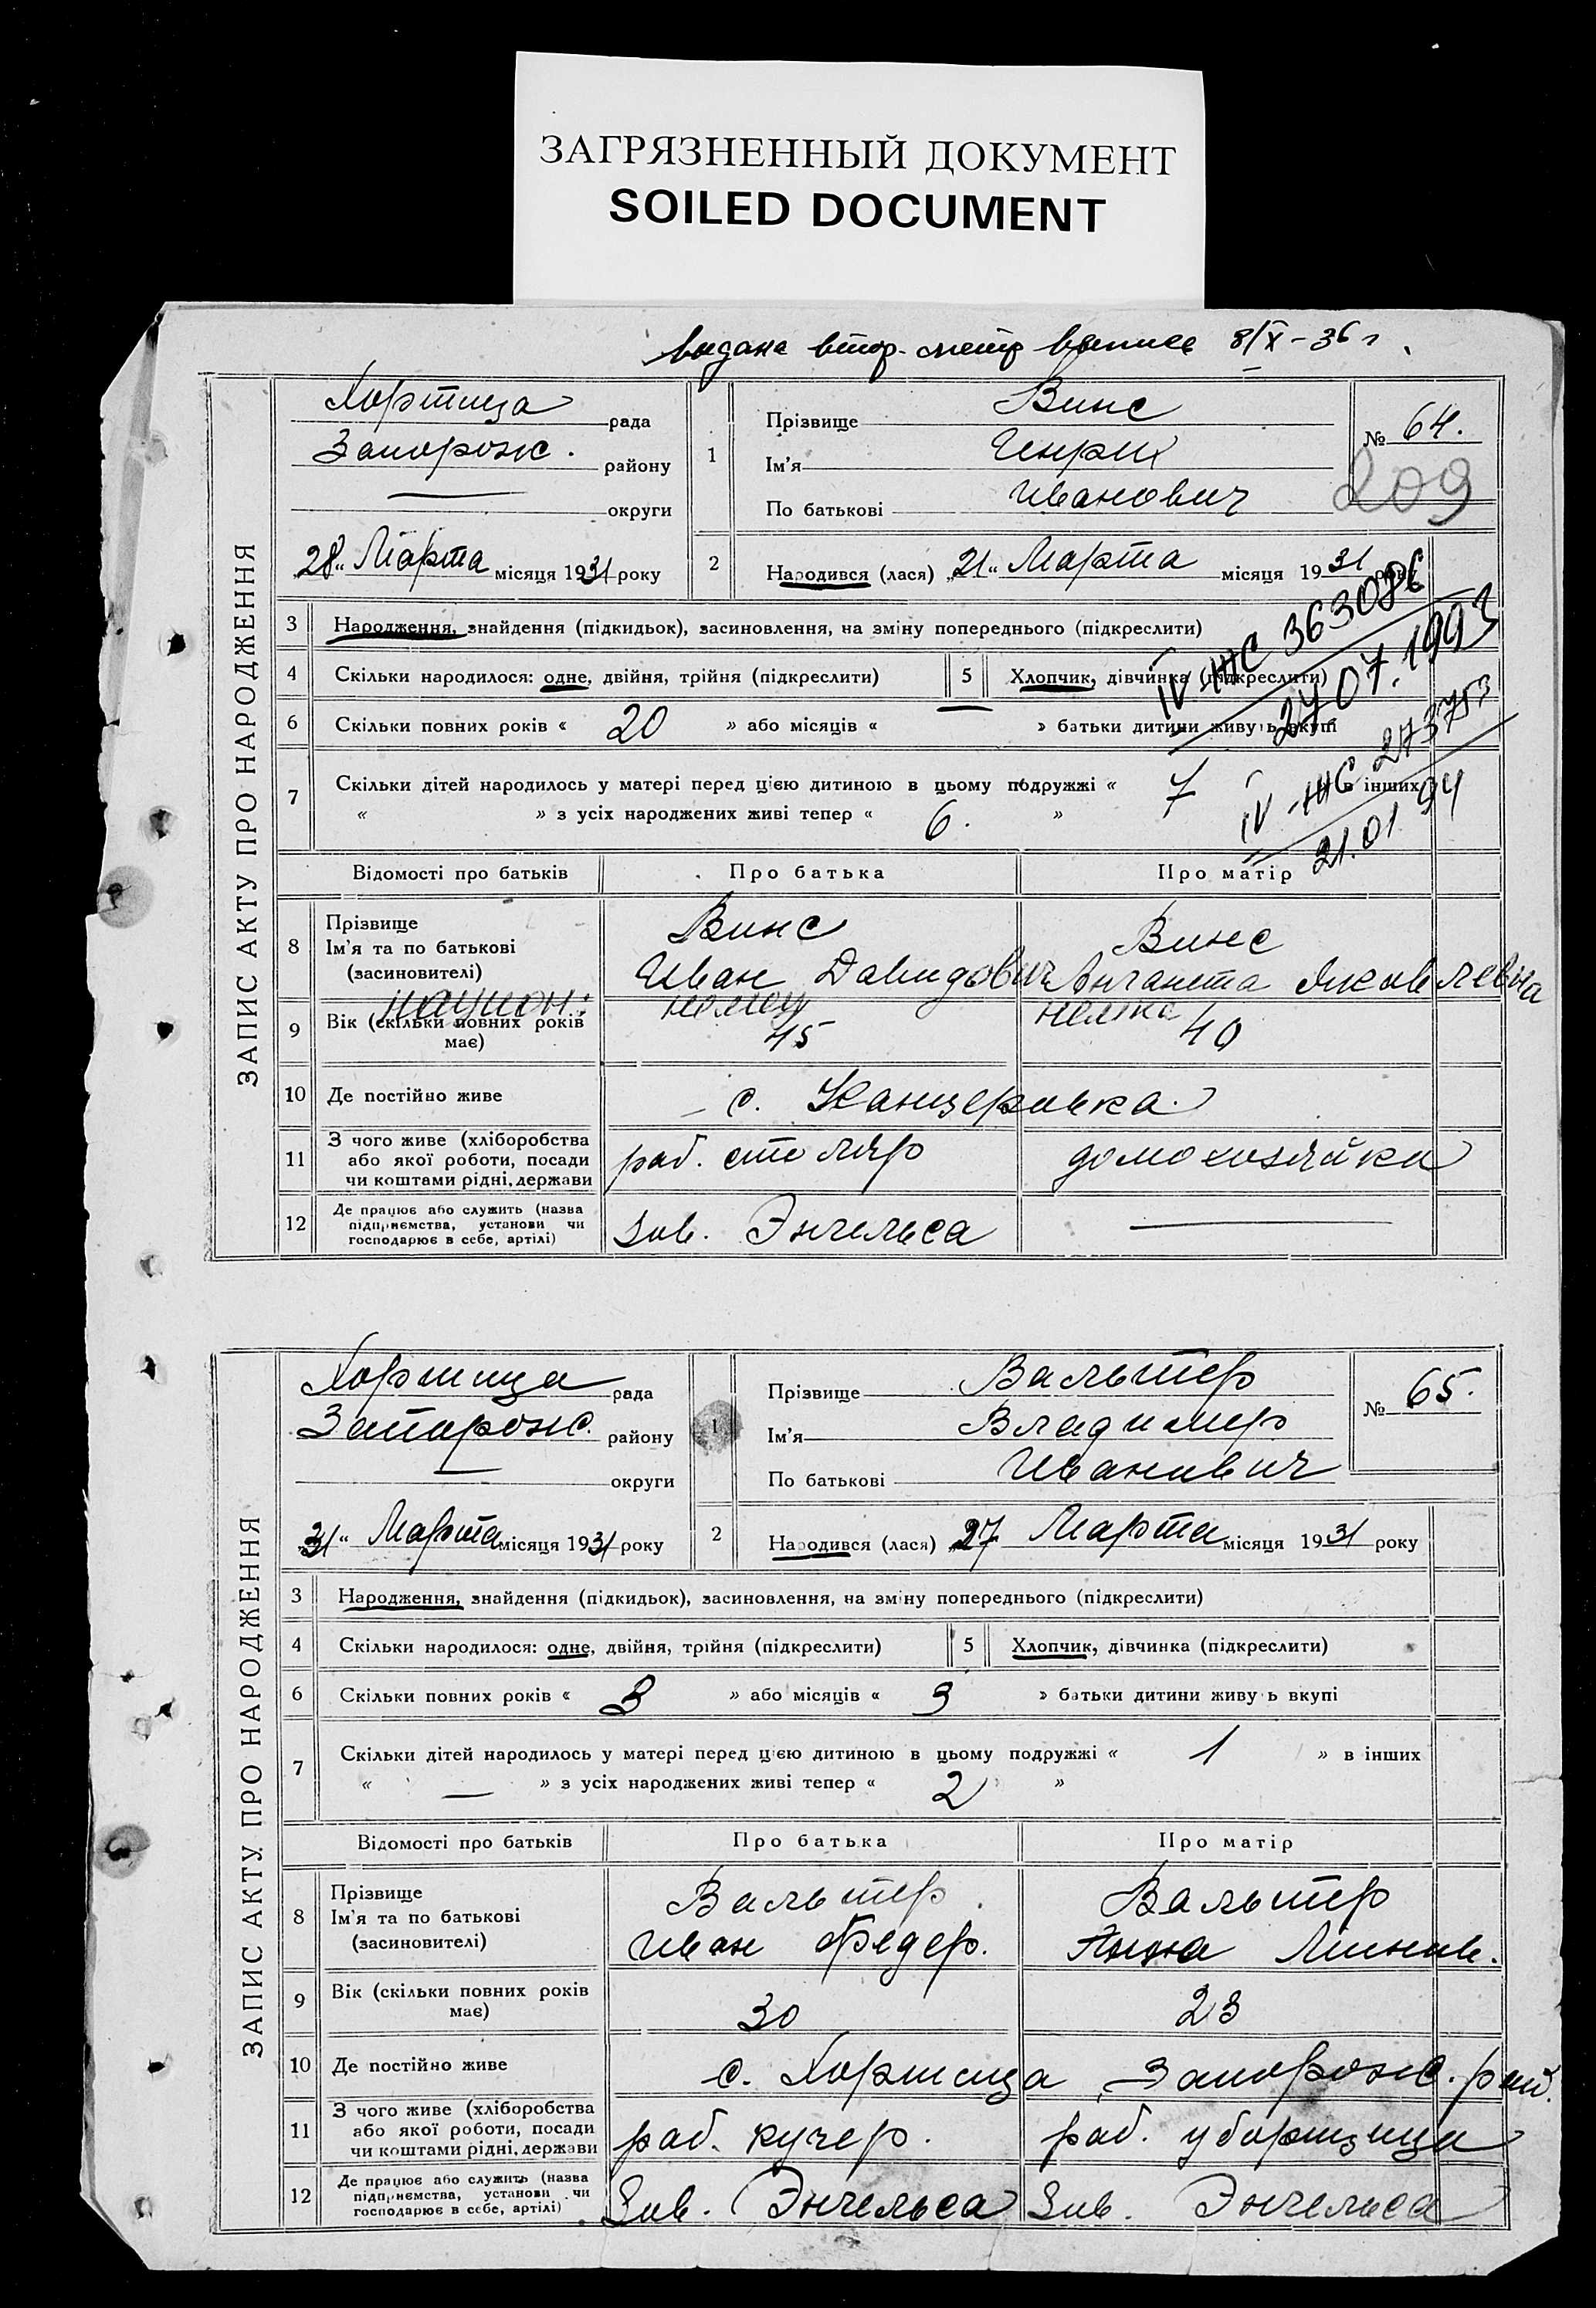 ЗАГРЯЗНЕННЫЙ ДОКУМЕНТ
SOILED DOCUMENT
выдана втор. метр выпись 8/X-36 г
ЗАПИС АКТУ ПРО НАРОДЖЕННЯ
Хортица рада
Запорож. району
— округи
"28" Марта місяця 1931 року
1 Прізвище Винс
Ім'я Генрих
По батькові Иванович
№ 64.
209
2 Народився (лася) "21" Марта місяця 1931 року
3 Народження, знайдення (підкидьок), засиновлення, на зміну попереднього (підкреслити)
4 Скільки народилося: одне, двійня, трійня (підкреслити) 5 Хлопчик, дівчинка (підкреслити)
IV-ЖС 363086
27.07.1993
6 Скільки повних років « 20 » або місяців « » батьки дитини живуть вкупі
7 Скільки дітей народилось у матері перед цією дитиною в цьому подружжі « 7 в інших
« » з усіх народжених живі тепер « 6. »
IV-ЖС 273753
21.01 94
Відомості про батьків Про батька Про матір
8 Прізвище Винс Винс
Ім'я та по батькові Иван Давидович Яковлевна
(засиновителі)
национ: немец немка
9 Вік (скільки повних років має) 45 40
10 Де постійно живе с. Канцеровка.
11 З чого живе (хліборобства або якої роботи, посади чи коштами рідні, держави раб. столяр домохозяйка
12 Де працює або служить (назва підприємства, установи чи господарює в себе, артілі) Зав. Энгельса —
ЗАПИС АКТУ ПРО НАРОДЖЕННЯ
Хортица рада
Запорож. району
— округи
"31" Марта місяця 1931 року
1 Прізвище Вальтер
Ім'я Владимир
По батькові Иванович
№ 65.
2 Народився (лася) "27 Марта місяця 1931 року
3 Народження, знайдення (підкидьок), засиновлення, на зміну попереднього (підкреслити)
4 Скільки народилося: одне, двійня, трійня (підкреслити) 5 Хлопчик, дівчинка (підкреслити)
6 Скільки повних років « 3 » або місяців « 3 » батьки дитини живуть вкупі
7 Скільки дітей народилось у матері перед цією дитиною в цьому подружжі « 1 » в інших
« — » з усіх народжених живі тепер « 2 »
Відомості про батьків Про батька Про матір
8 Прізвище Вальтер Вальтер
Ім'я та по батькові Иван Федер. Анна
(засиновителі)
9 Вік (скільки повних років має) 30 23
10 Де постійно живе с. Хортица Запорож. рай.
11 З чого живе (хліборобства або якої роботи, посади чи коштами рідні, держави раб. кучер. раб. уборщица
12 Де працює або служить (назва підприємства, установи чи господарює в себе, артілі) Зав. Энгельса Зав. Энгельса